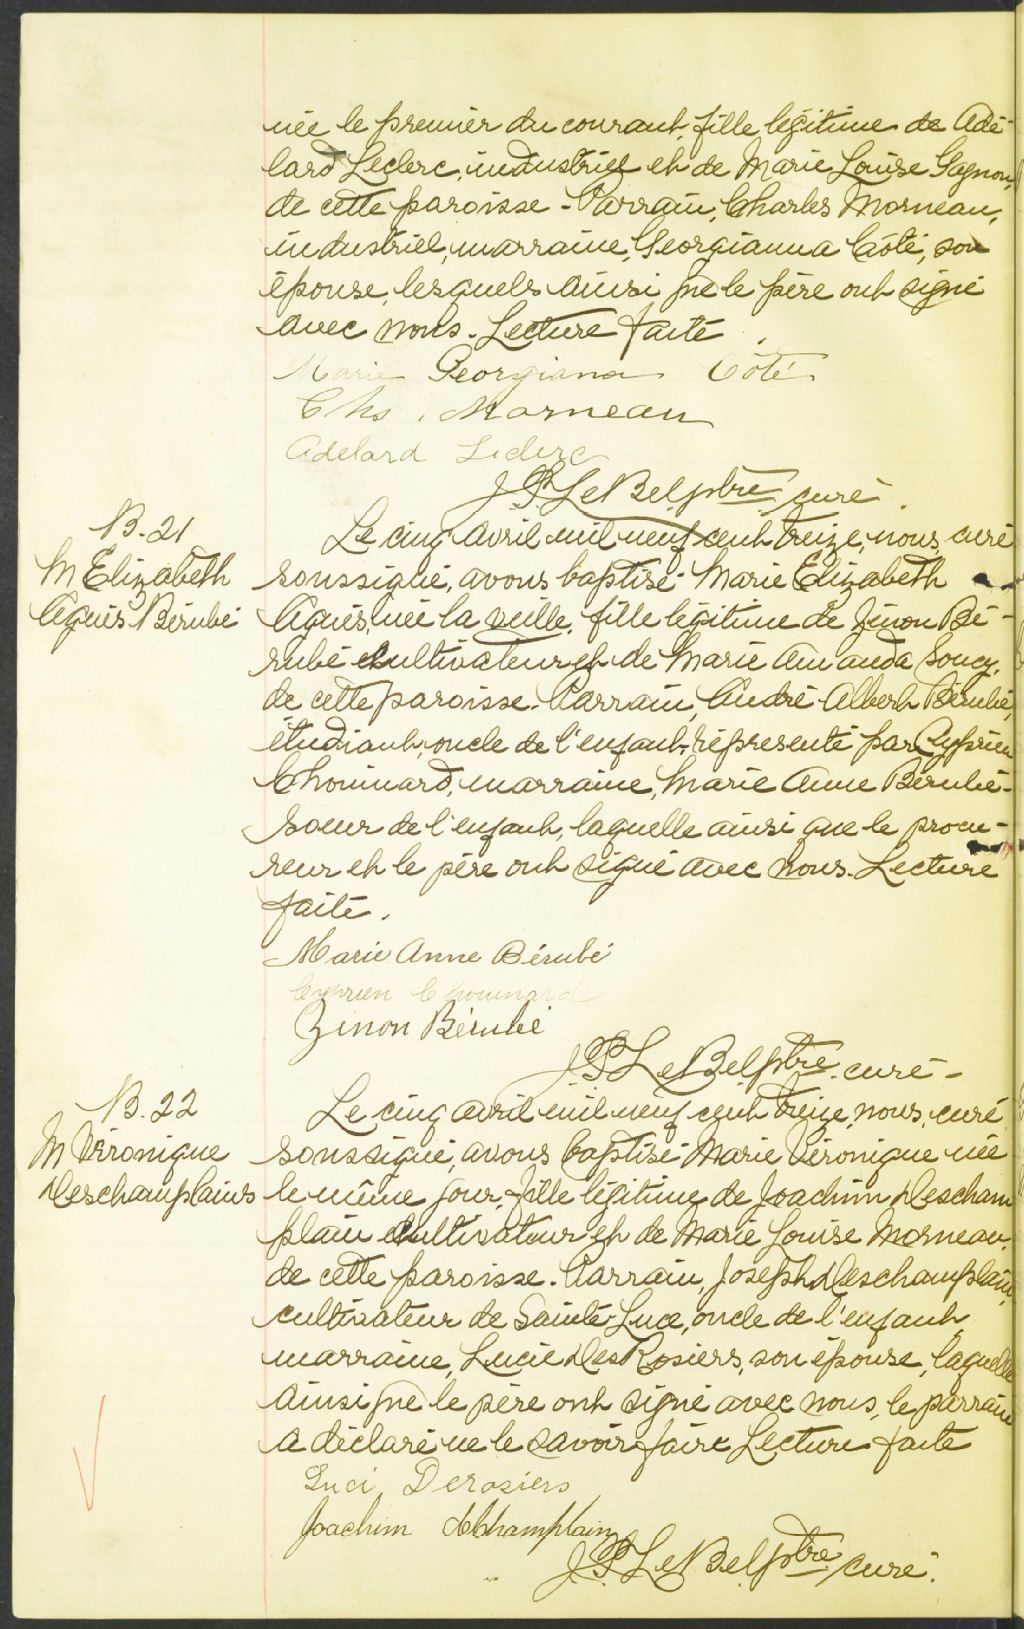 née le premier du courant, fille légitime de Adé-
lard Leclerc, industriel et de Marie Louise Gagnon,
de cette paroisse - Parrain, Charles Morneau,
industriel, marraine, Georgianna Côté, son
épouse, lesquels ainsi que le père ont signé
avec nous. Lecture faite.
Marie Georgiana Côté
Chs. Morneau
Adelard Leclerc
J. P. LeBel, ptre, curé.
B. 21
M Elizabeth
Agnès Bérubé
Le cinq avril mil neuf cent treize, nous, curé
soussigné, avons baptisé Marie Elizabeth
Agnès, née la veille, fille légitime de Zénon Bé-
rubé cultivateur et de Marie Amanda Soucy,
de cette paroisse. Parrain, André Albert Bérubé,
étudiant, oncle de l'enfant, représenté par Cyprien
Chouinard, marraine, Marie Anne Bérubé
soeur de l'enfant, laquelle ainsi que le procu-
reur et le père ont signé avec nous. Lecture
faite.
Marie Anne Bérubé
Cyprien Chouinard
Zénon Bérubé
J. P. LeBel, ptre, curé -
B. 22
M Véronique
Deschamplains
Le cinq avril mil neuf cent treize, nous, curé
soussigné, avons baptisé Marie Véronique née
le même jour, fille légitime de Joachim Descham
plain cultivateur et de Marie Louise Morneau,
de cette paroisse. Parrain, Joseph Deschamplain,
cultivateur de Sainte-Luce, oncle de l'enfant,
marraine, Lucie DesRosiers, son épouse, laquelle
ainsi que le père ont signé avec nous, le parrain
a déclaré ne le savoir faire Lecture faite
Luci Derosiers
Joachim deChamplain
J. P. LeBel, ptre, curé.